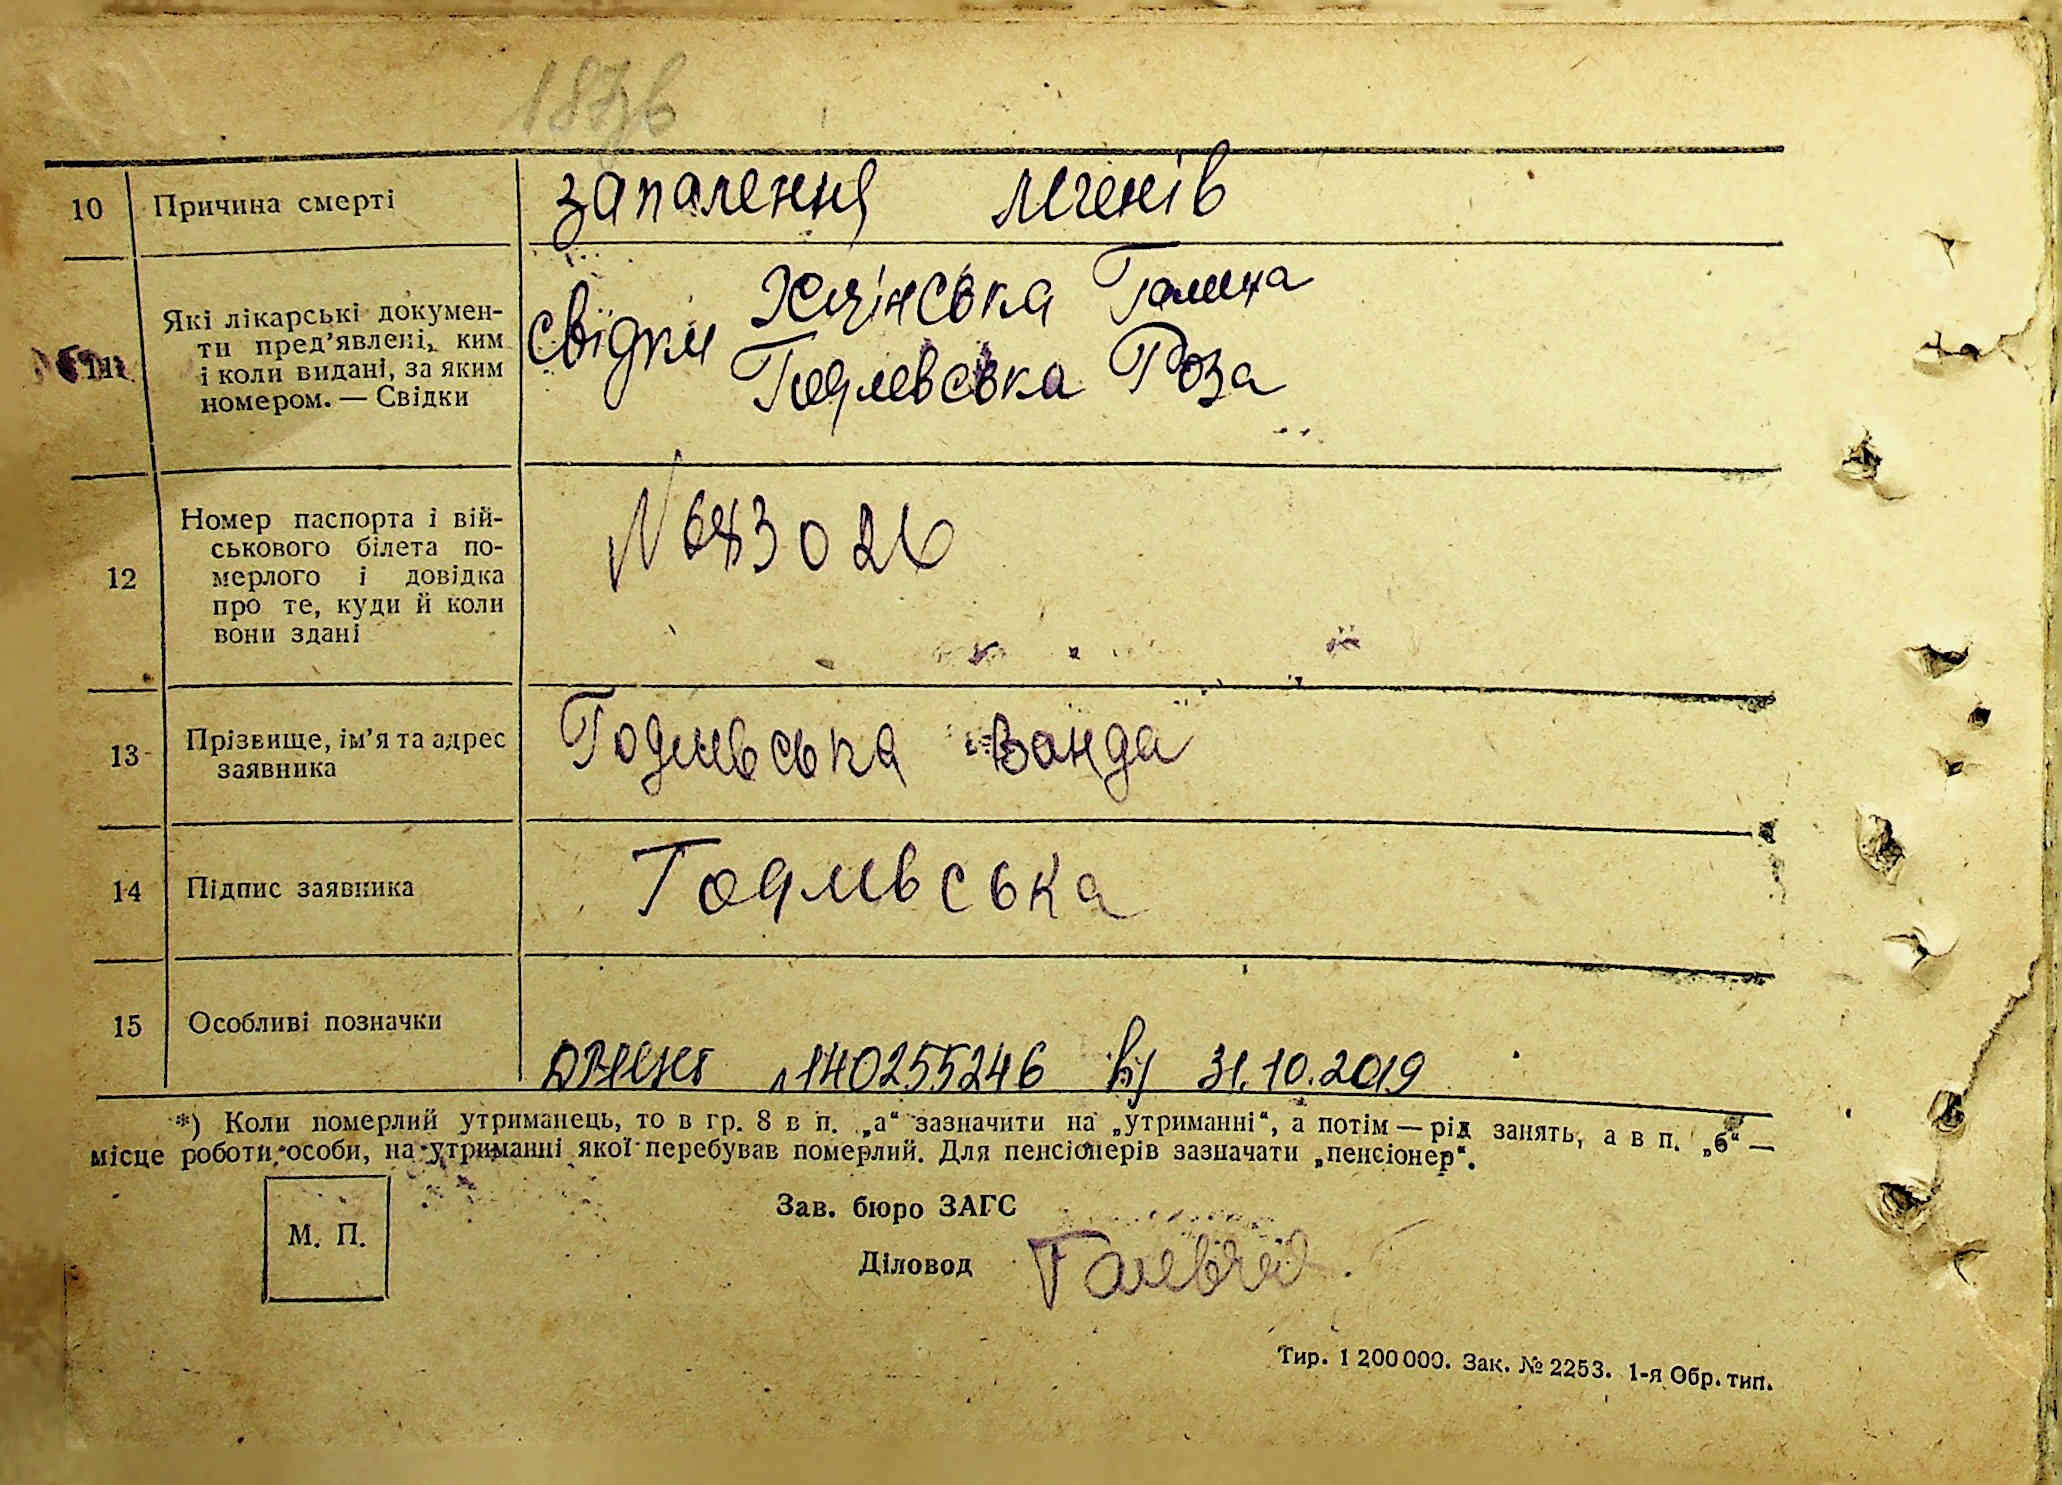 10 Причина смерті запалення легенів
Які лікарські докумен-
ти пред’явлені, ким
і коли видані, за яким
номером. — Свідки
свідки
Галина
Годлевська Роза
12 Номер паспорта і вій-
ськового білета по-
мерлого і довідка
про те, куди й коли
вони здані
13 Прізвище, ім’я та адрес
заявника
Годлевська Ванда
14 Підпис заявника Годлевська
15 Особливі позначки
140255246 31.10.2019
*) Коли померлий утриманець, то в гр. 8 в п. „а“ зазначити на „утриманні“, а потім — рід занять, а в п. „б“ —
місце роботи особи, на утриманні якої перебував померлий. Для пенсіонерів зазначати „пенсіонер“.
М. П.
Зав. бюро ЗАГС
Діловод
Тир. 1 200 000. Зак. № 2253. 1-я Обр. тип.